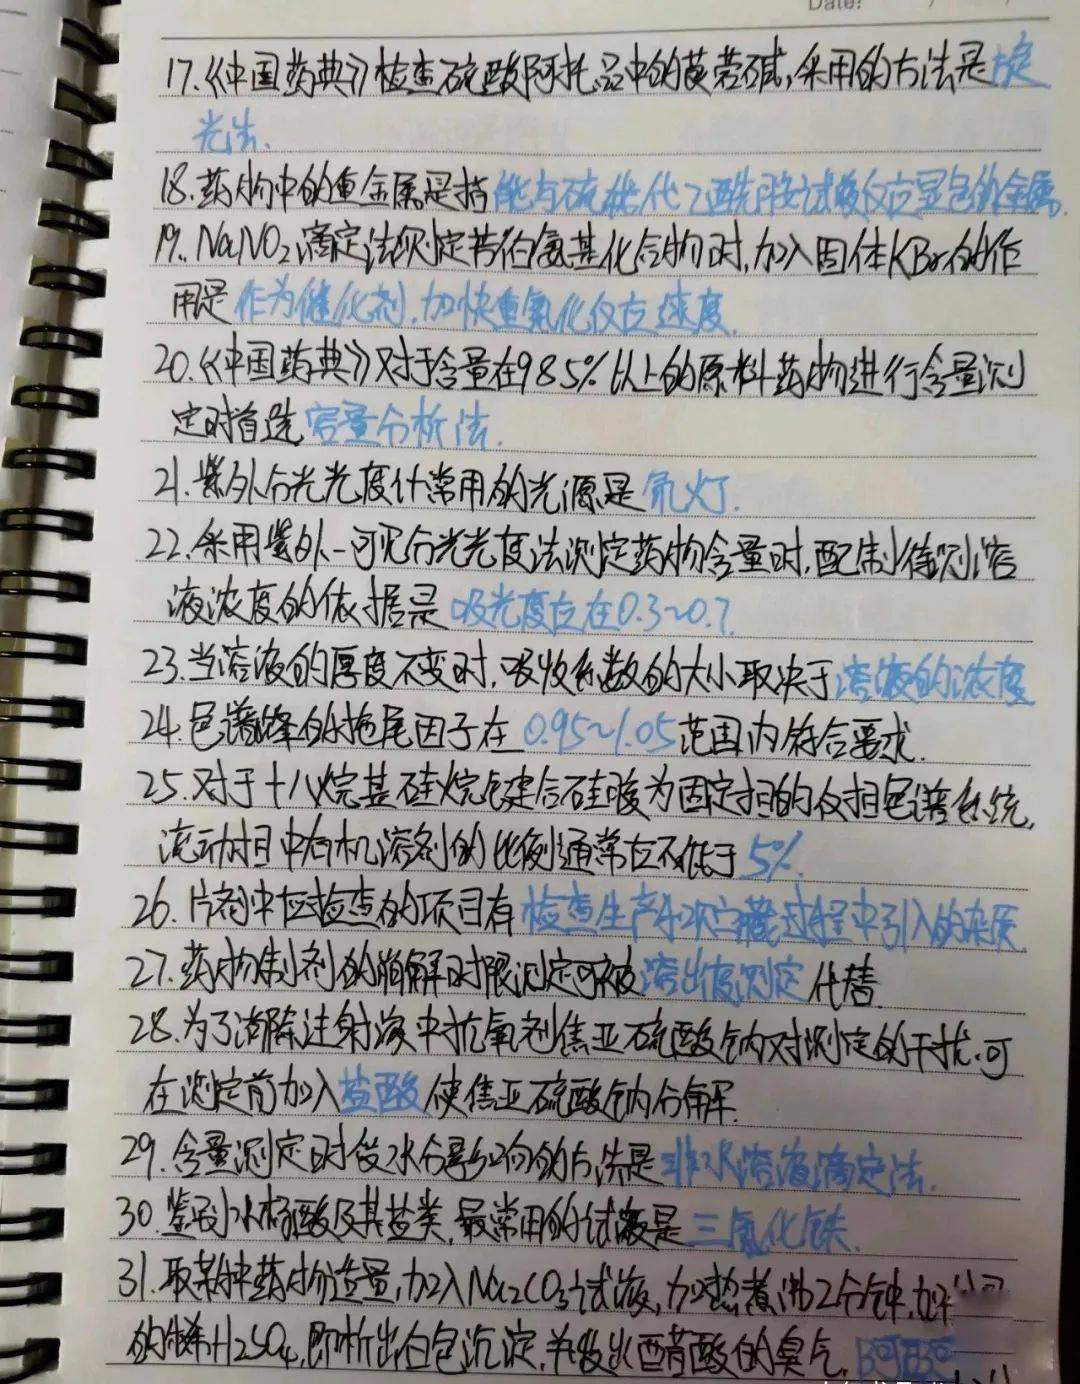 Date: / /
17.《中国药典》检查硫酸阿托品中的莨菪碱,采用的方法是旋
光法.
18.药物中的重金属是指能与硫代乙酰胺试液反应显色的金属.
19.NaNO2滴定法测定芳伯氨基化合物时,加入固体KBr的作
用是作为催化剂,加快重氮化反应速度.
20.《中国药典》对于含量在98.5%以上的原料药物进行含量测
定时首选容量分析法.
21.紫外分光光度计常用的光源是氘灯.
22.采用紫外-可见分光光度法测定药物含量时,配制待测溶
液浓度的依据是吸光度应在0.3~0.7.
23.当溶液的厚度不变时,吸收系数的大小取决于溶液的浓度
24.色谱峰的拖尾因子在0.95~1.05范围内符合要求.
25.对于十八烷基硅烷键合硅胶为固定相的反相色谱系统,
流动相中有机溶剂的比例通常应不低于5%.
26.片剂中应检查的项目有检查生产和贮藏过程中引入的杂质.
27.药物制剂的崩解时限测定可被溶出度测定代替.
28.为了消除注射液中抗氧剂焦亚硫酸钠对测定的干扰,可
在测定前加入盐酸使焦亚硫酸钠分解.
29.含量测定时受水分影响的方法是非水溶液滴定法.
30.鉴别水杨酸及其盐类,最常用的试液是三氯化铁.
31.取某种药物适量,加入Na2CO3试液,加热煮沸2分钟,加
的稀H2SO4,即析出白色沉淀,并发出醋酸的臭气.